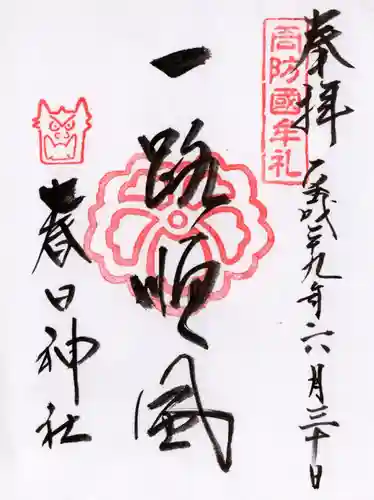 奉拝
平成二十九年六月三十日
周防國牟礼
一路順風
春日神社